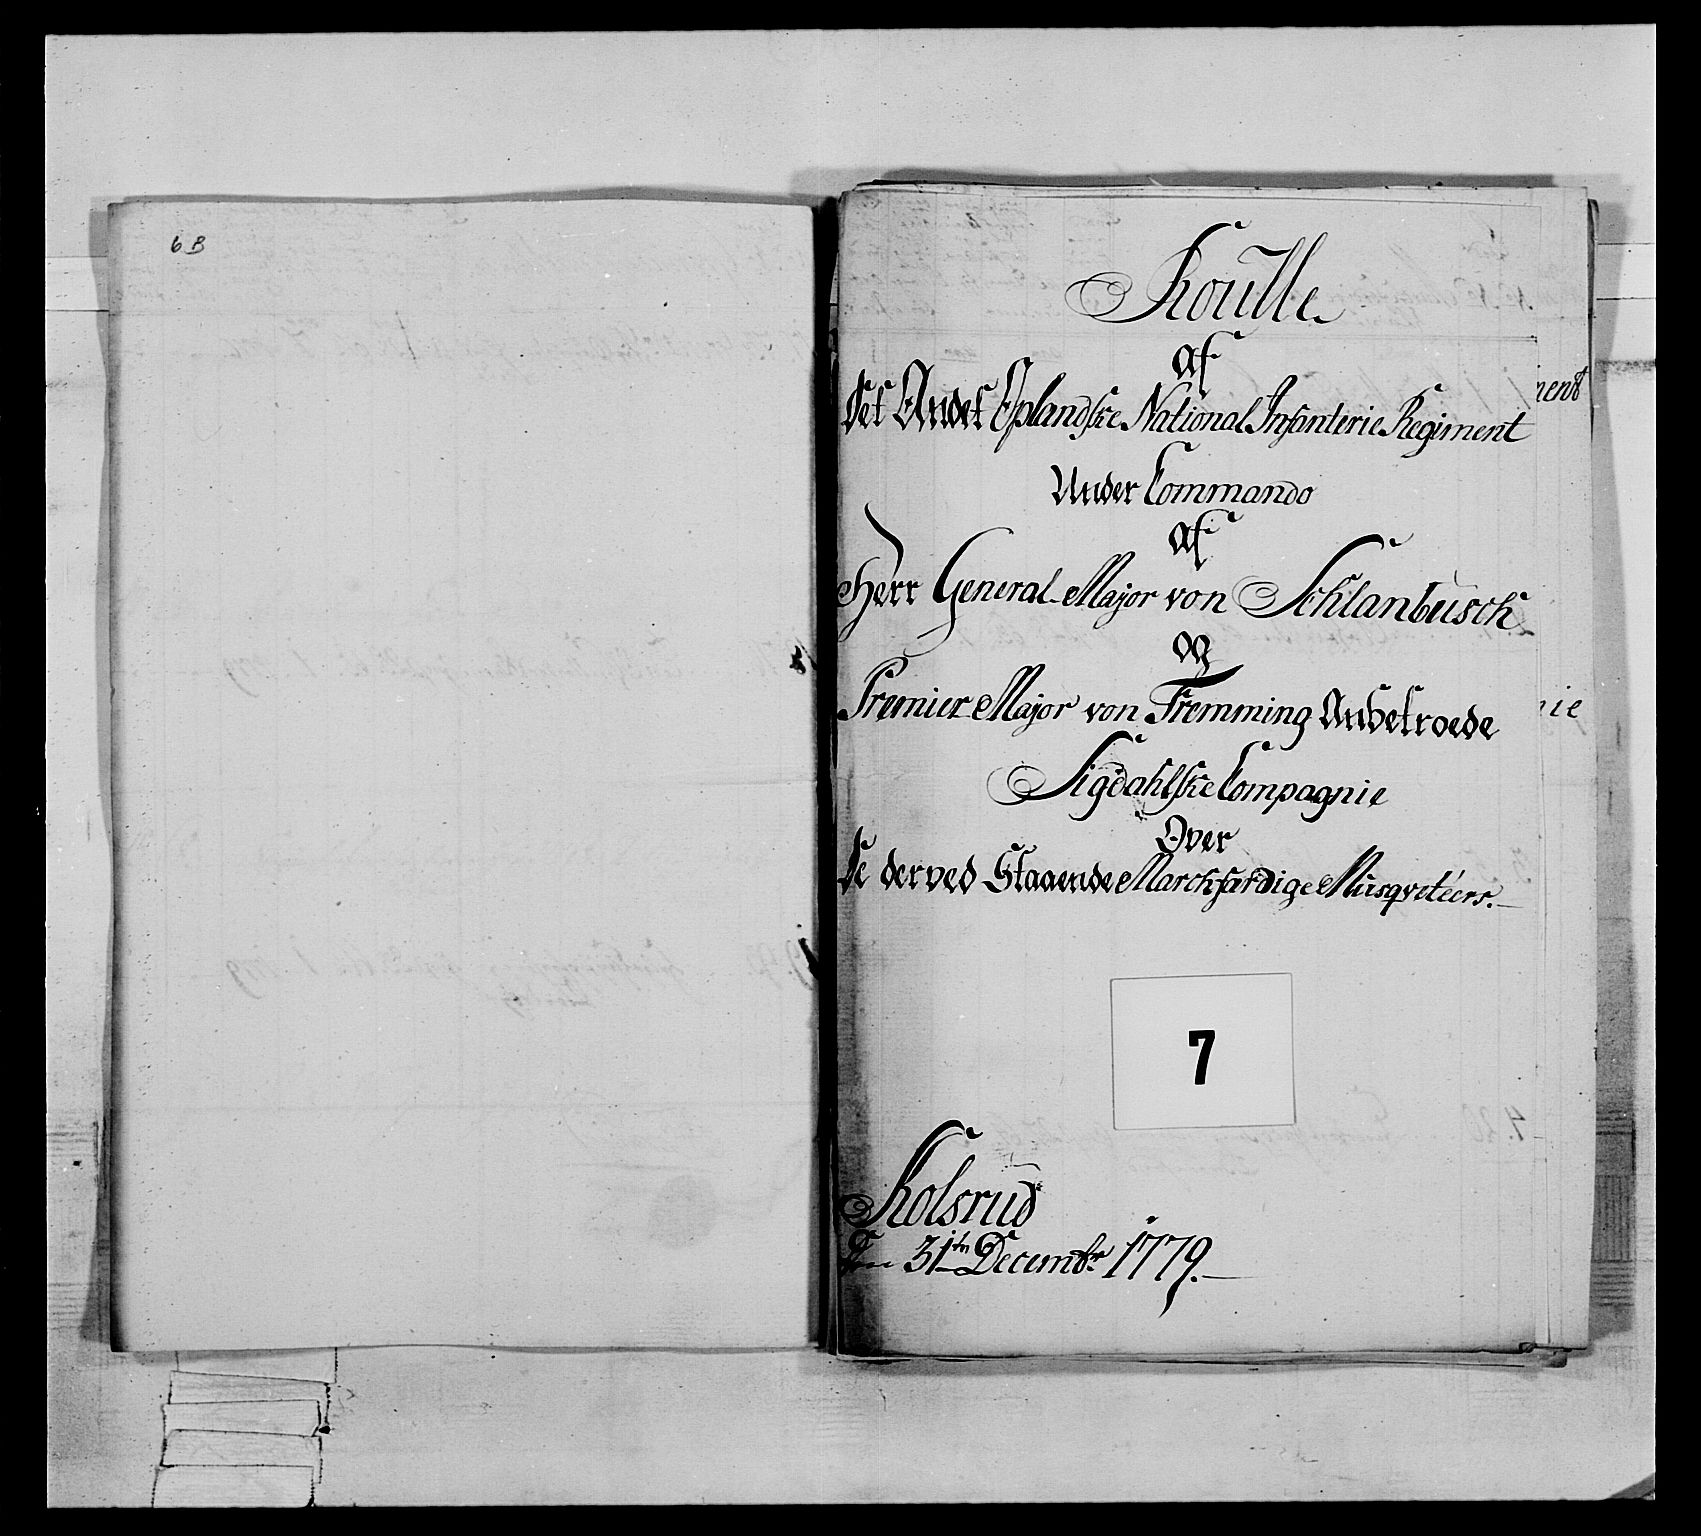 6 B
Roulle
af
det Andet Oplandske National Infanterie Regiment
Under Commando
af
Herr General-Major von Schlanbusch
og
Premier-Major von Fremming Anbetroede
Sigdahlske Compagnie
Over
de derved Staaende Marchfærdige Musqvetéers.
7
Kolsrud
den 31te Decembr 1779.